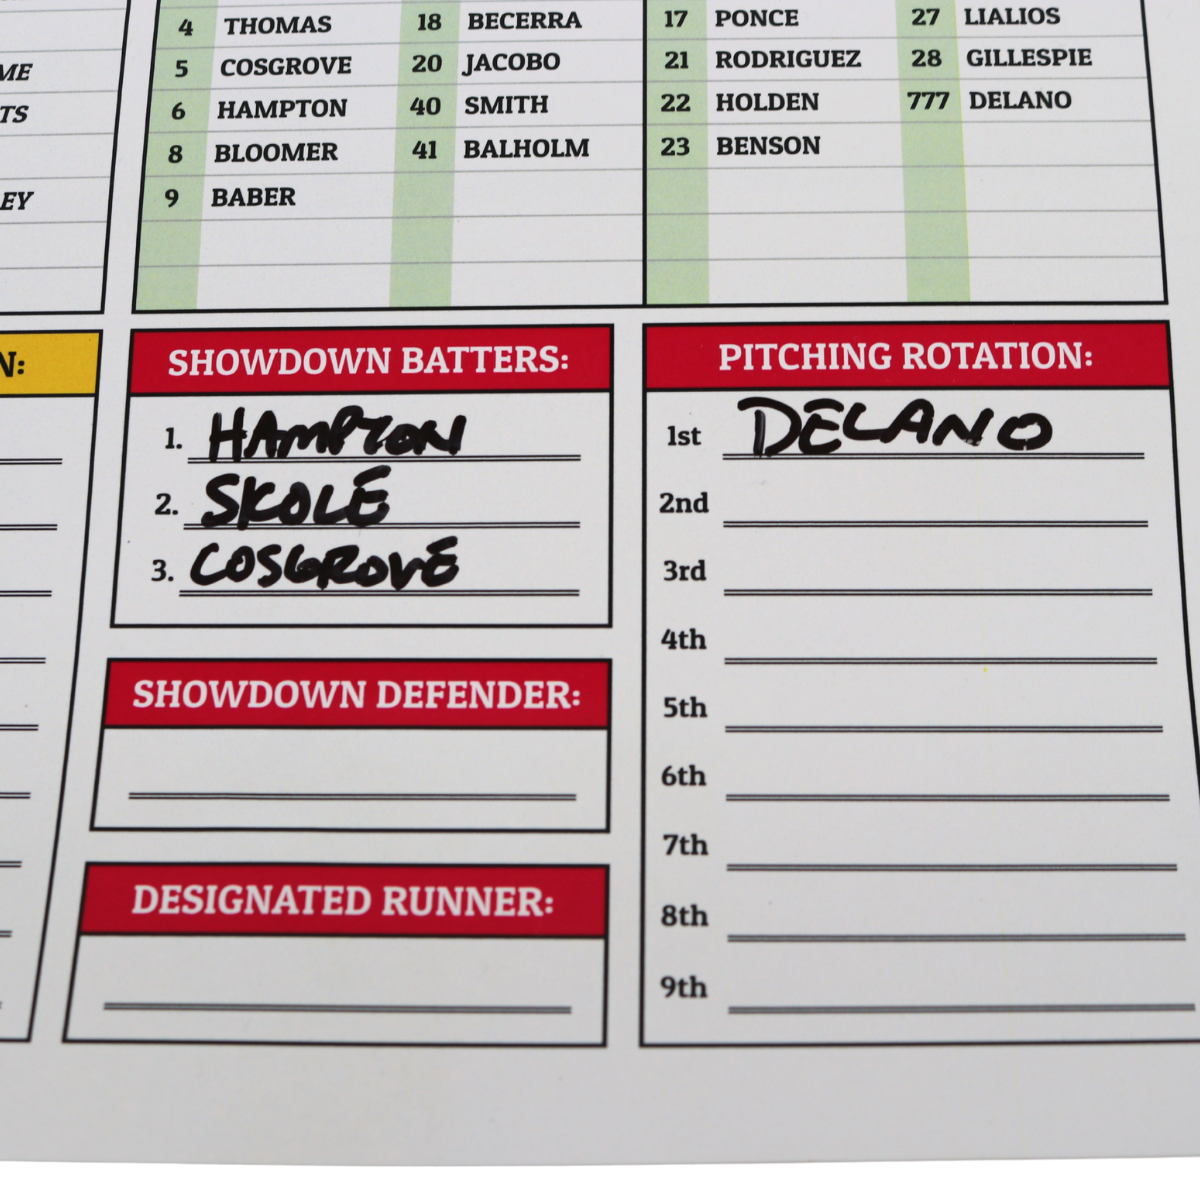 4 THOMAS 18 BECERRA 17 PONCE 27 LIALIOS
5 COSGROVE 20 JACOBO 21 RODRIGUEZ 28 GILLESPIE
6 HAMPTON 40 SMITH 22 HOLDEN 777 DELANO
8 BLOOMER 41 BALHOLM 23 BENSON
9 BABER
ME
TS
EY
N:
SHOWDOWN BATTERS:
1. HAMPTON
2. SKOLE
3. COSGROVE
SHOWDOWN DEFENDER:
DESIGNATED RUNNER:
PITCHING ROTATION:
1st DELANO
2nd
3rd
4th
5th
6th
7th
8th
9th